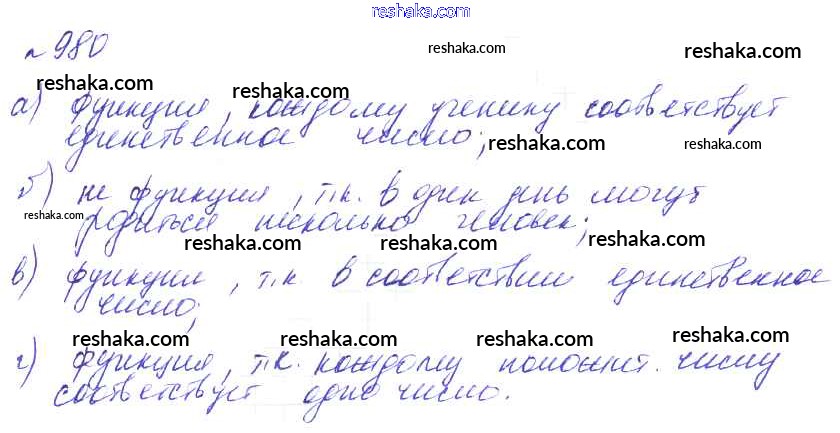 reshaka.com
№ 980
reshaka.com reshaka.com
reshaka.com reshaka.com
а) функция, каждому ученику соответствует
единственное число;
reshaka.com reshaka.com
б) не функция, т.к. в один день могут
reshaka.com
родиться несколько человек;
reshaka.com reshaka.com reshaka.com
в) функция, т.к. в соответствии единственное
число;
reshaka.com reshaka.com reshaka.com reshaka.com
г) функция, т.к. каждому полożит. числу
соответствует одно число.